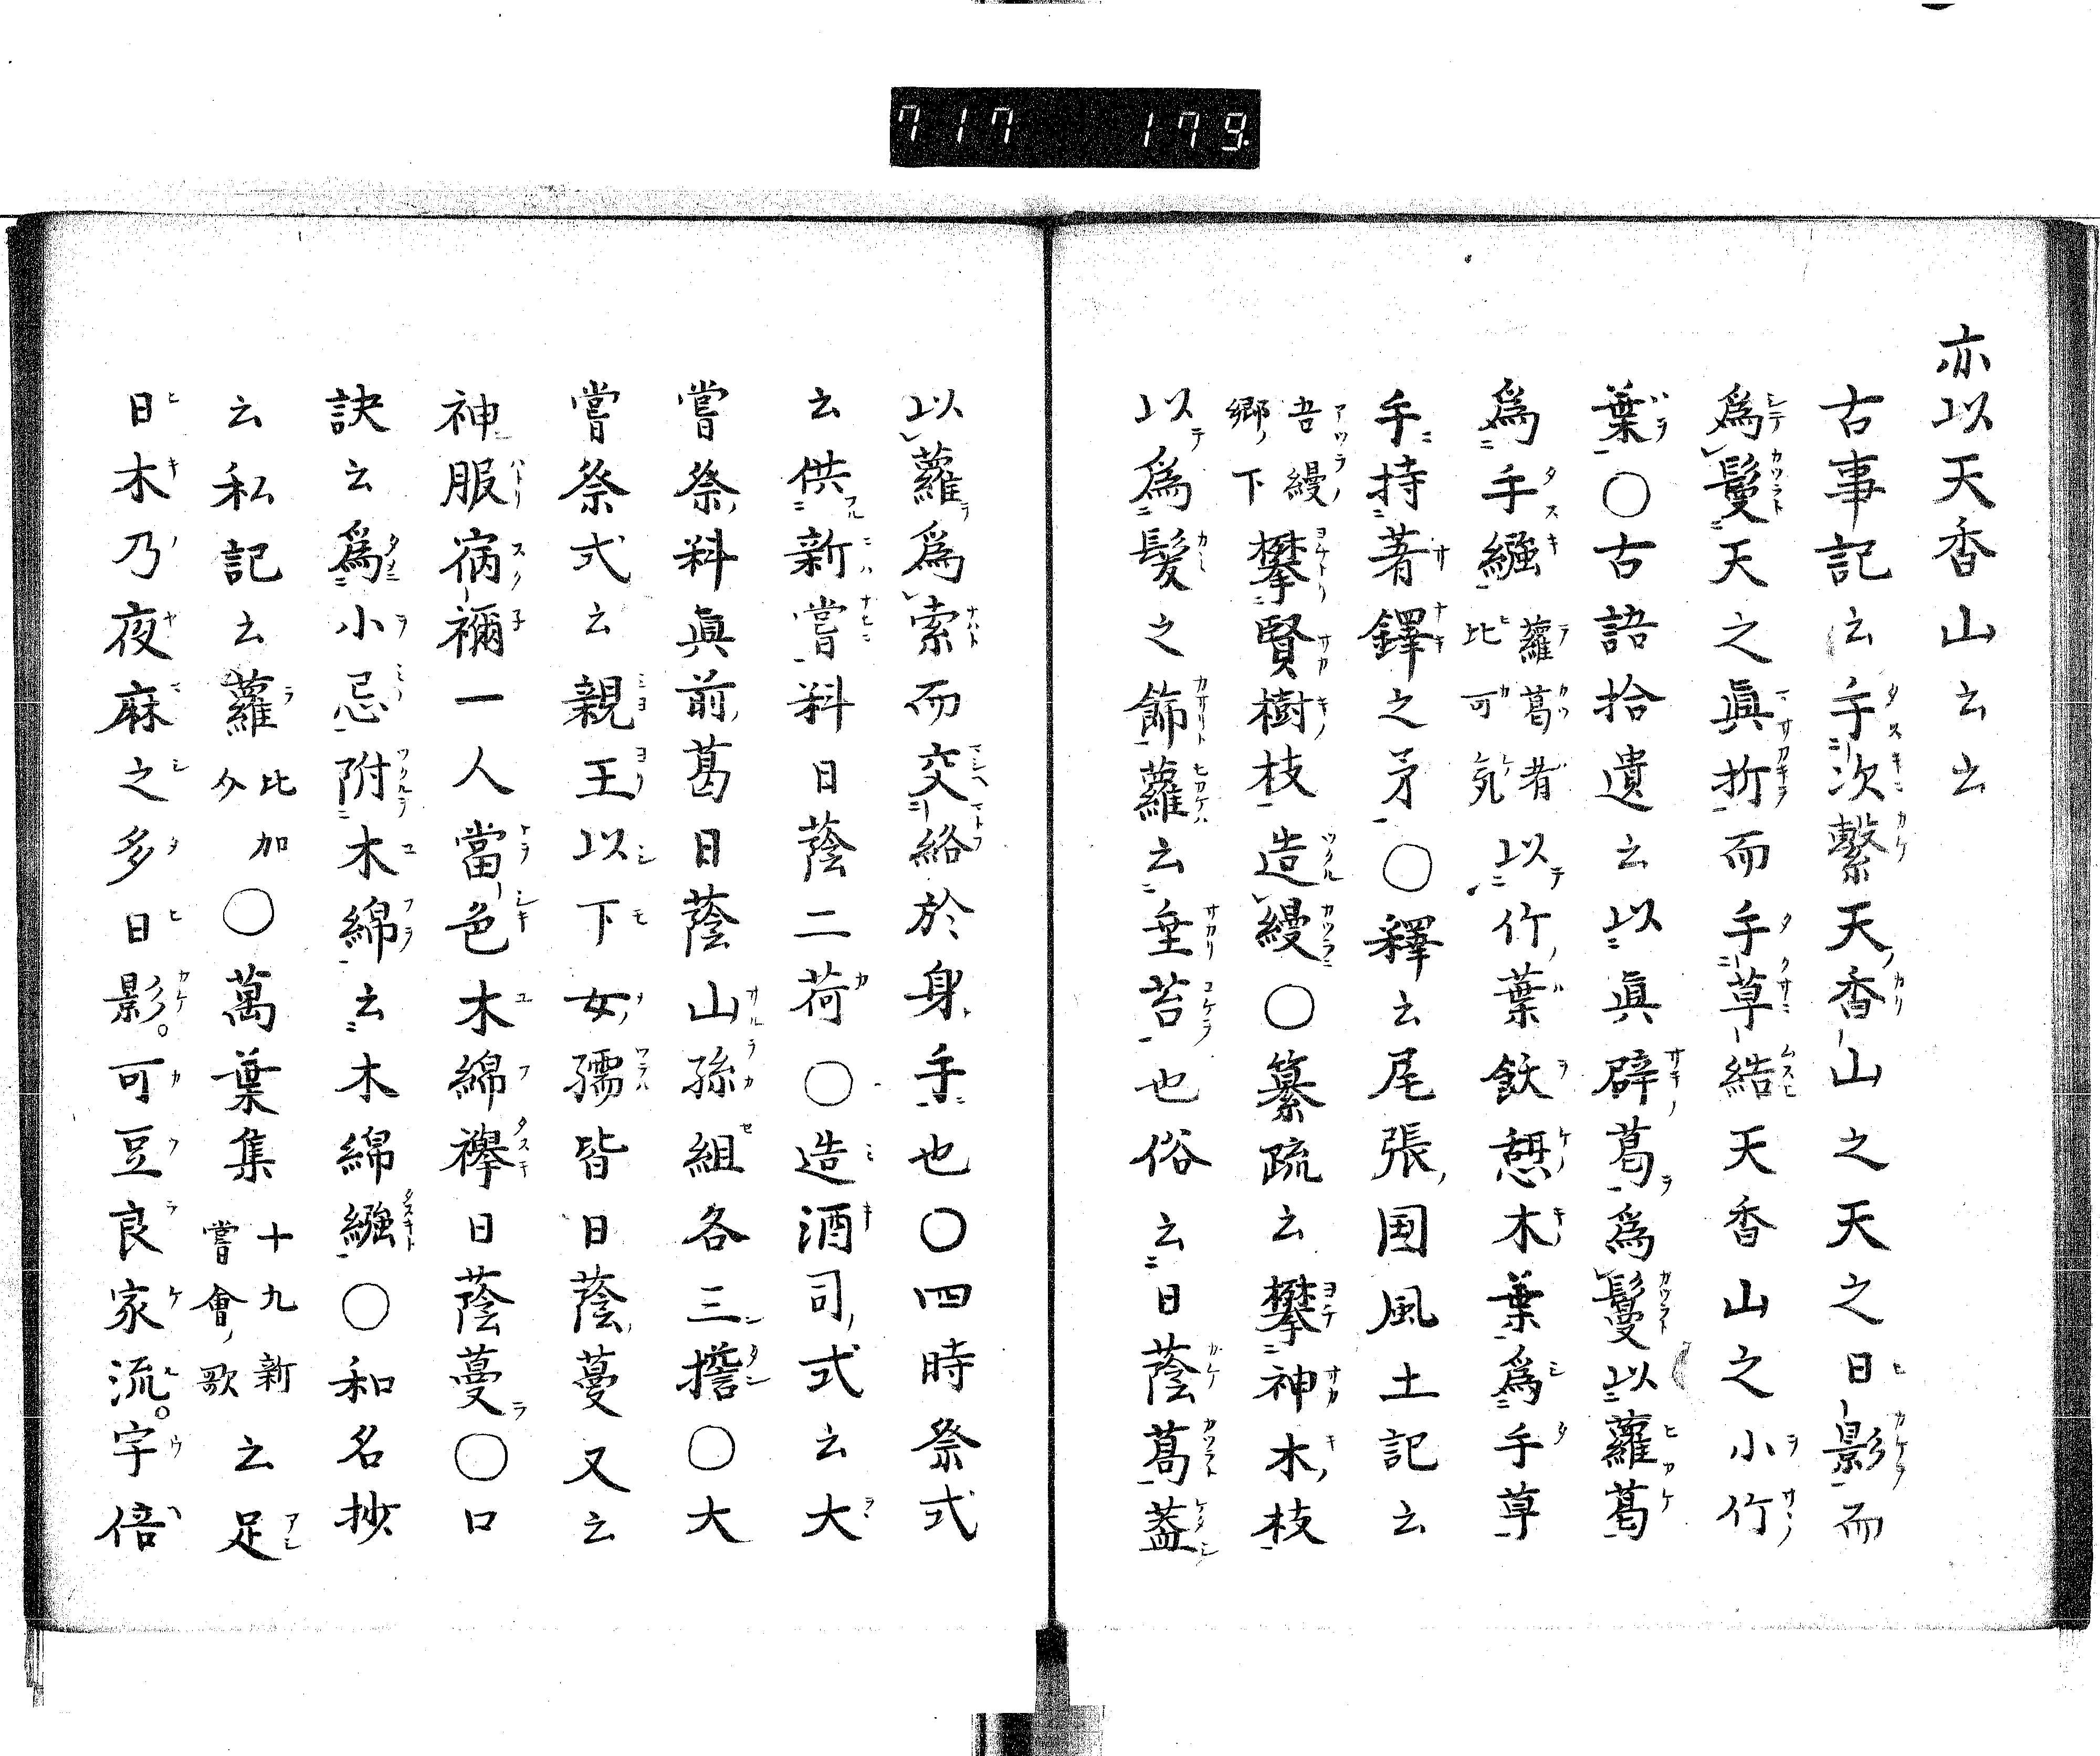 717 179
亦以天香山云云
古事記云手次繫天香山之天之日影而
為鬘天之眞折而手草結天香山之小竹
葉○古語拾遺云以眞辟葛為鬘以蘿葛
為手繦蘿葛者比可気以竹葉飫憩木葉為手草
手持著鐸之矛○釋云尾張國風土記云
吾縵郷下攀賢樹枝造縵○纂疏云攀神木枝
以為髮之飾蘿云垂苔也俗云日蔭葛蓋
以蘿為索而交絡於身手也○四時祭式
云供新嘗料日蔭二荷○造酒司式云大
嘗祭料眞前葛日蔭山孫組各三擔○大
嘗祭式云親王以下女孺皆日蔭蔓又云
神服宿禰一人當色木綿襷日蔭蔓○口
訣云為小忌附木綿云木綿繦○和名抄
云私記云蘿比加介○萬葉集十九新嘗會歌云足
日木乃夜麻之多日影可豆良家流宇倍